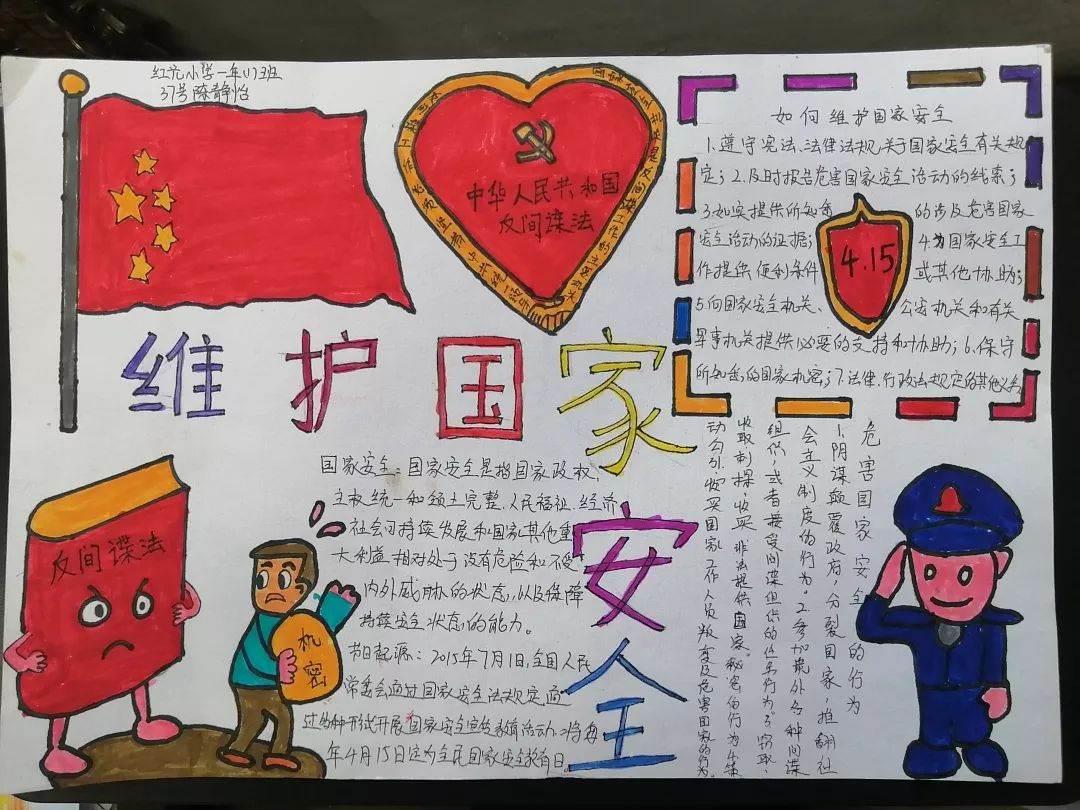 红光小学一年(1)班
37号陈静怡
中华人民共和国
反间谍法
如何维护国家安全
1.遵守宪法、法律法规关于国家安全有关规
定；2.及时报告危害国家安全活动的线索；
3.如实提供所知悉的涉及危害国家
安全活动的证据；4.为国家安全工
作提供便利条件或其他协助；
5.向国家安全机关、公安机关和有关
军事机关提供必要的支持和协助；6.保守
所知悉的国家机密；7.法律、行政法规定的其他义务
4.15
维护国家安全
国家安全：国家安全是指国家政权、
主权统一和领土完整、人民福祉、经济
社会可持续发展和国家其他重
大利益相对处于没有危险和不受
内外威胁的状态，以及保障
持续安全状态的能力。
节日起源：2015年7月1日，全国人民
常委会通过国家安全法规定通
过多种形式开展国家安全宣传教育活动，将每
年4月15日定为全民国家安全教育日。
危害国家安全的行为
1.阴谋颠覆政府，分裂国家，推翻社
会主义制度的行为。2.参加境外各种间谍
组织，或者接受间谍组织的任务行为3.窃取、
收取刺探、收买、非法提供国家秘密的行为4.策
动勾引、收买国家工作人员叛变及危害国家的行为。
反间谍法
机密